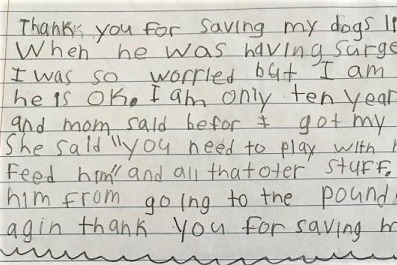 Thank you for saving my dogs
When he was having
I was so worried but I am
he is OK. I am only ten
and mom said befor I got my
She said "you need to play with
Feed him" and all that oter stuff.
him from going to the pound
agin thank you for saving